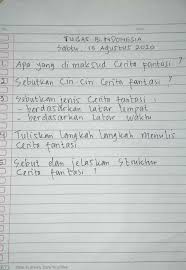 TUGAS B. INDONESIA
Sabtu, 15 Agustus 2020
1. Apa yang dimaksud Cerita fantasi ?
2. Sebutkan Ciri-Ciri Cerita fantasi ?
3. Sebutkan jenis Cerita fantasi :
- berdasarkan latar tempat
- berdasarkan latar waktu
4 Tuliskan langkah langkah menulis
Cerita fantasi
5. Sebut dan jelaskan Struktur
Cerita fantasi !